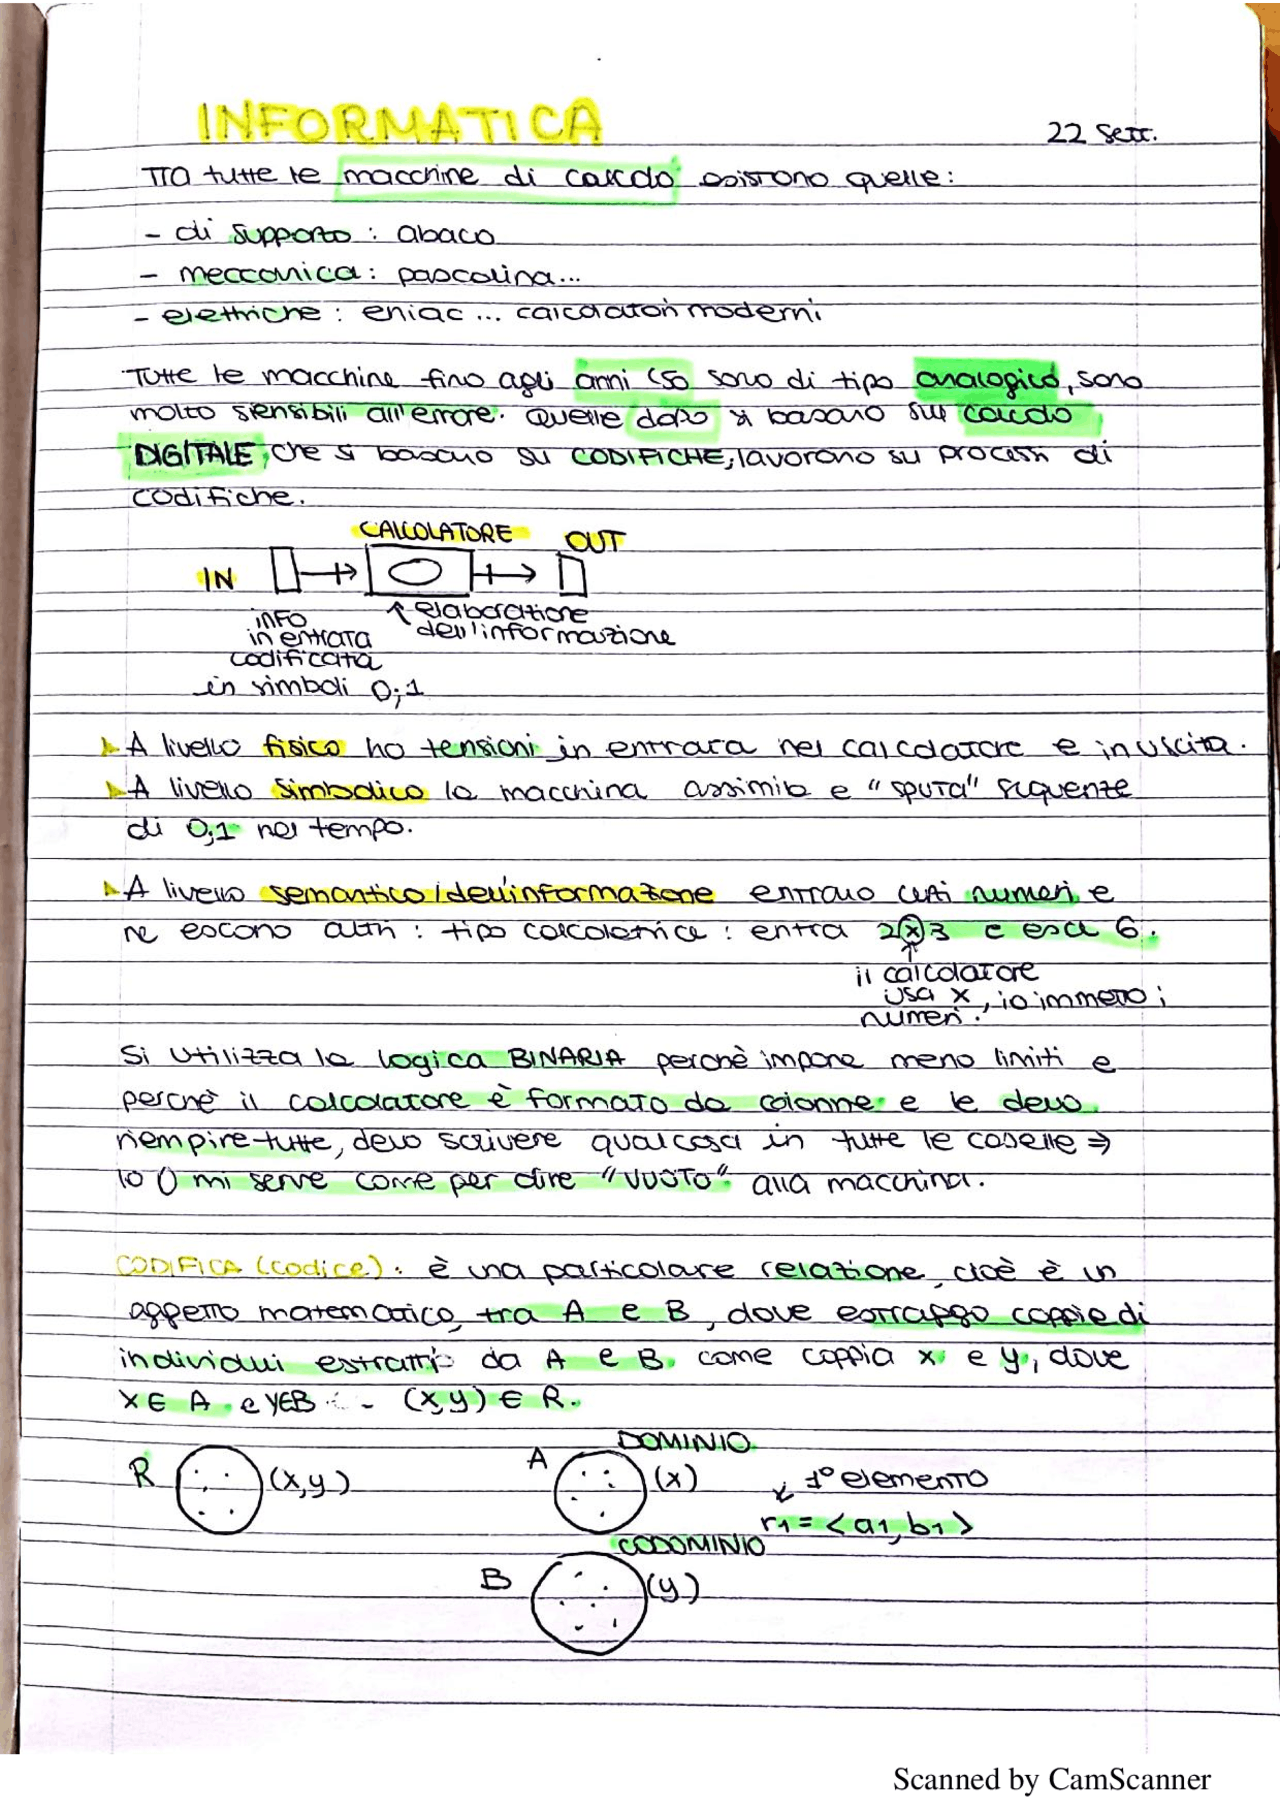 INFORMATICA
22 Sett.
Tra tutte le macchine di calcolo esistono quelle:
- di supporto : abaco
- meccanica : pascalina...
- elettriche : eniac ... calcolatori moderni
Tutte le macchine fino agli anni '50 sono di tipo analogico, sono
molto sensibili all'errore. Quelle dopo si basano sul calcolo
DIGITALE, che si basano su CODIFICHE, lavorano su processi di
codifiche.
CALCOLATORE
OUT
IN
info
in entrata
codificata
in simboli 0;1
elaborazione
dell'informazione
A livello fisico ho tensioni in entrata nel calcolatore e in uscita.
A livello simbolico la macchina assimila e "sputa" sequenze
di 0,1 nel tempo.
A livello semantico/dell'informazione entrano certi numeri e
ne escono altri : tipo calcolatrice : entra 2x3 e esce 6.
il calcolatore
usa x, io immetto i
numeri.
Si utilizza la logica BINARIA perchè impone meno limiti e
perchè il calcolatore è formato da colonne e le devo
riempire tutte, devo scrivere qualcosa in tutte le caselle ⇒
lo 0 mi serve come per dire "VUOTO" alla macchina.
CODIFICA (codice): è una particolare relazione, cioè è un
oggetto matematico, tra A e B, dove estraggo coppie di
individui estratti da A e B. come coppia x e y, dove
x ∈ A e y∈B - (x,y) ∈ R.
R (x,y)
DOMINIO
A (x)
1° elemento
r1 = <a1, b1>
CODOMINIO
B (y)
Scanned by CamScanner